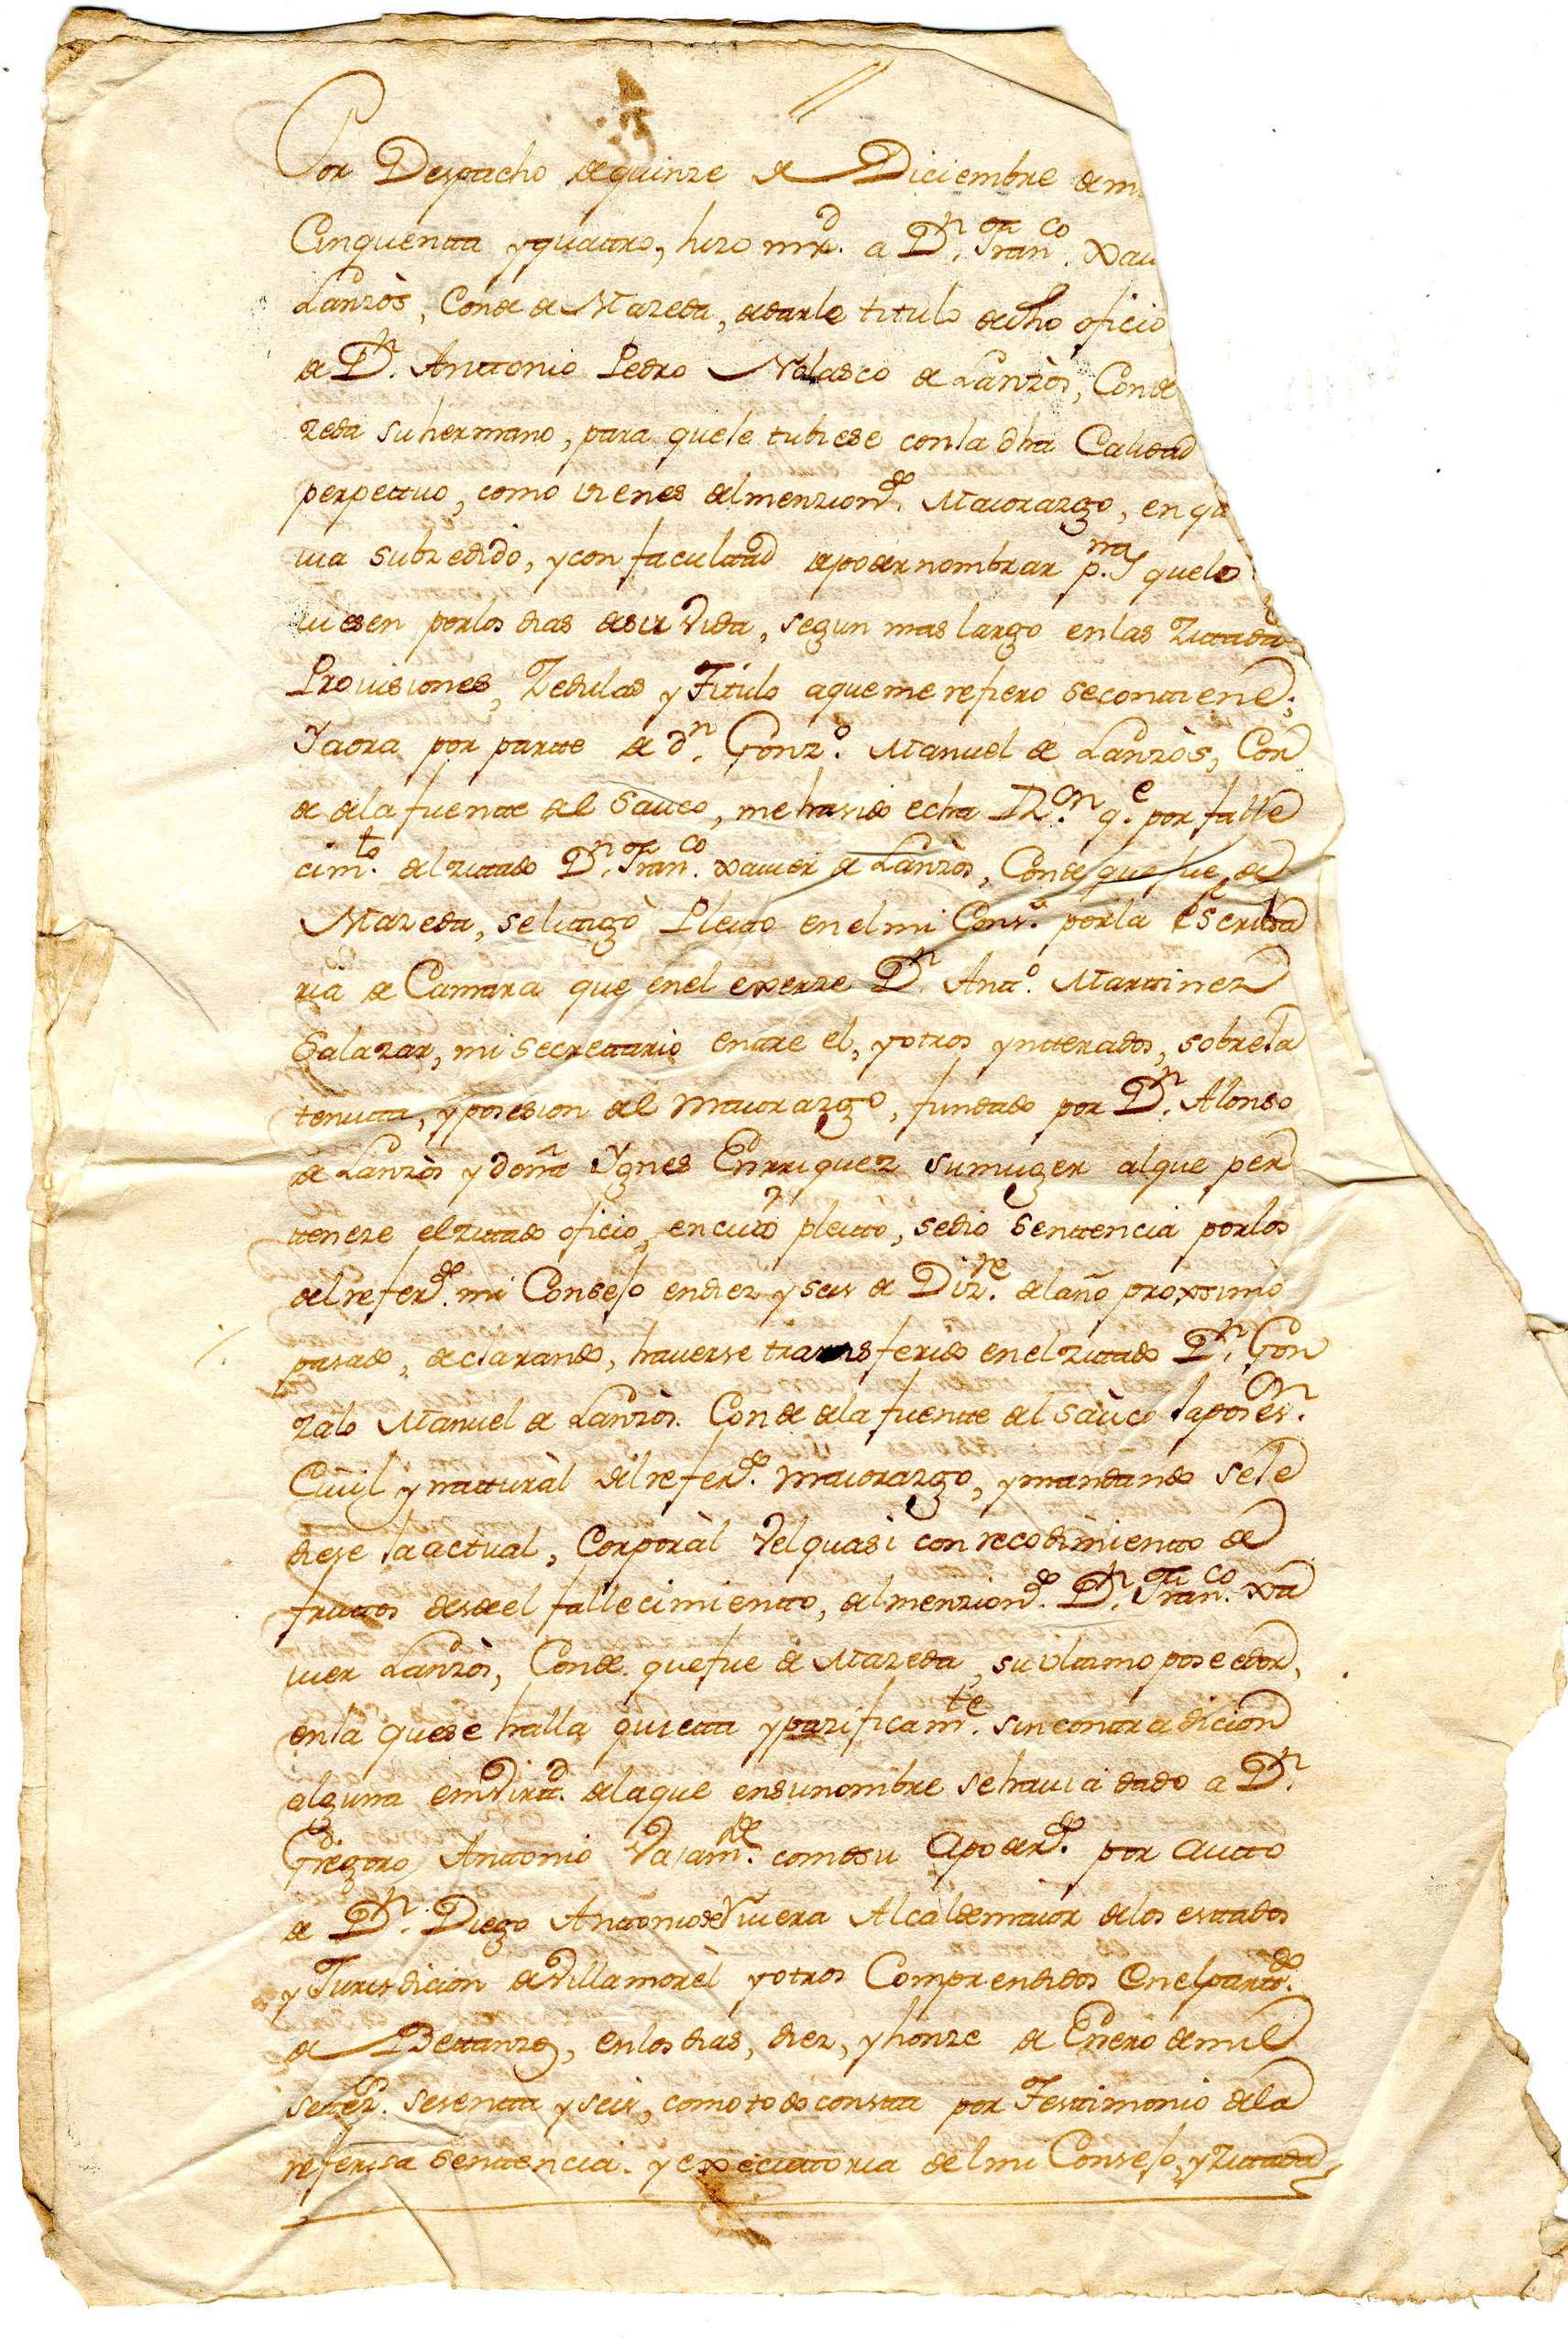 Por Despacho de quinze de Diciembre de m
Cinquentta y quattro, hize mrd. a Dn. Franco. Xau
Lanzòs, Conde de Mazeda, de darle titulo de dho oficio
de Dn. Anttonio Pedro Nolasco de Lanzòs, Conde
zeda su hermano, para que le tubiese con la dha Calidad
perpettuo, como vienes del menziondo. Maiorazgo, en qu
uia subzedido, y con facultad de poder nombrar pna. que lo
uiesen por los dias de su Vida, segun mas largo en las Zittada
Prouisiones, Zedulas y Titulo a que me refiero se conttiene;
Y aora por partte de dn. Gonzo. Manuel de Lanzòs, Con
de de la fuentte del Sauco, me ha sido echa Ron. qe. por falle
cimto. del zittado Dn. Franco. Xauier de Lanzòs, Conde que fue de
Mazeda, se litigò Pleitto en el mi Consº. por la Escriba
nia de Camara que en el exerze Dn. Antto. Marttinez
Salazar, mi Secrettario entre el, y otros ynteresados, sobre la
tenutta, y posesion del Maiorazgo, fundado por Dn. Alonso
de Lanzòs y doña Ygnes Enrriquez su muger al que per
tteneze el zittado oficio, en cuio pleitto, se dio Senttencia por los
del referdo. mi Consejo en diez y seis de Dizre. del año proximo
pasado, declarando, hauerse transferido en el zittado Dn. Gon
zalo Manuel de Lanzòs. Conde de la fuentte del Saùco la poseson.
Ciuil y natturàl del referdo. Maiorazgo, y mandando se le
diese la actual, Corporàl Vel quasi con recodimientto de
fruttos desde el fallecimientto, del menziondo. Dn. Franco. Xa
uier Lanzòs, Conde que fue de Mazeda, su vltimo poseedor,
en la que se halla quietta y pazificamte. sin conttradicion
alguna en virtd. de la que en su nombre se hauia dado a Dn.
Gregorio Anttonio Vajamde. como su Apoderdo. por autto
de Dn. Diego Anttonio de Riuera Alcàlde maior de los esttados
y Jurisdicion de Villamorèl y otros Comprendidos en el parttdo.
de Bettanzos, en los dias, diez, y honze de Enero de mil
settezs. sesentta y seis, como todo constta por Testtimonio de la
referida Senttencia. y executtoria del mi Consejo, y zittada